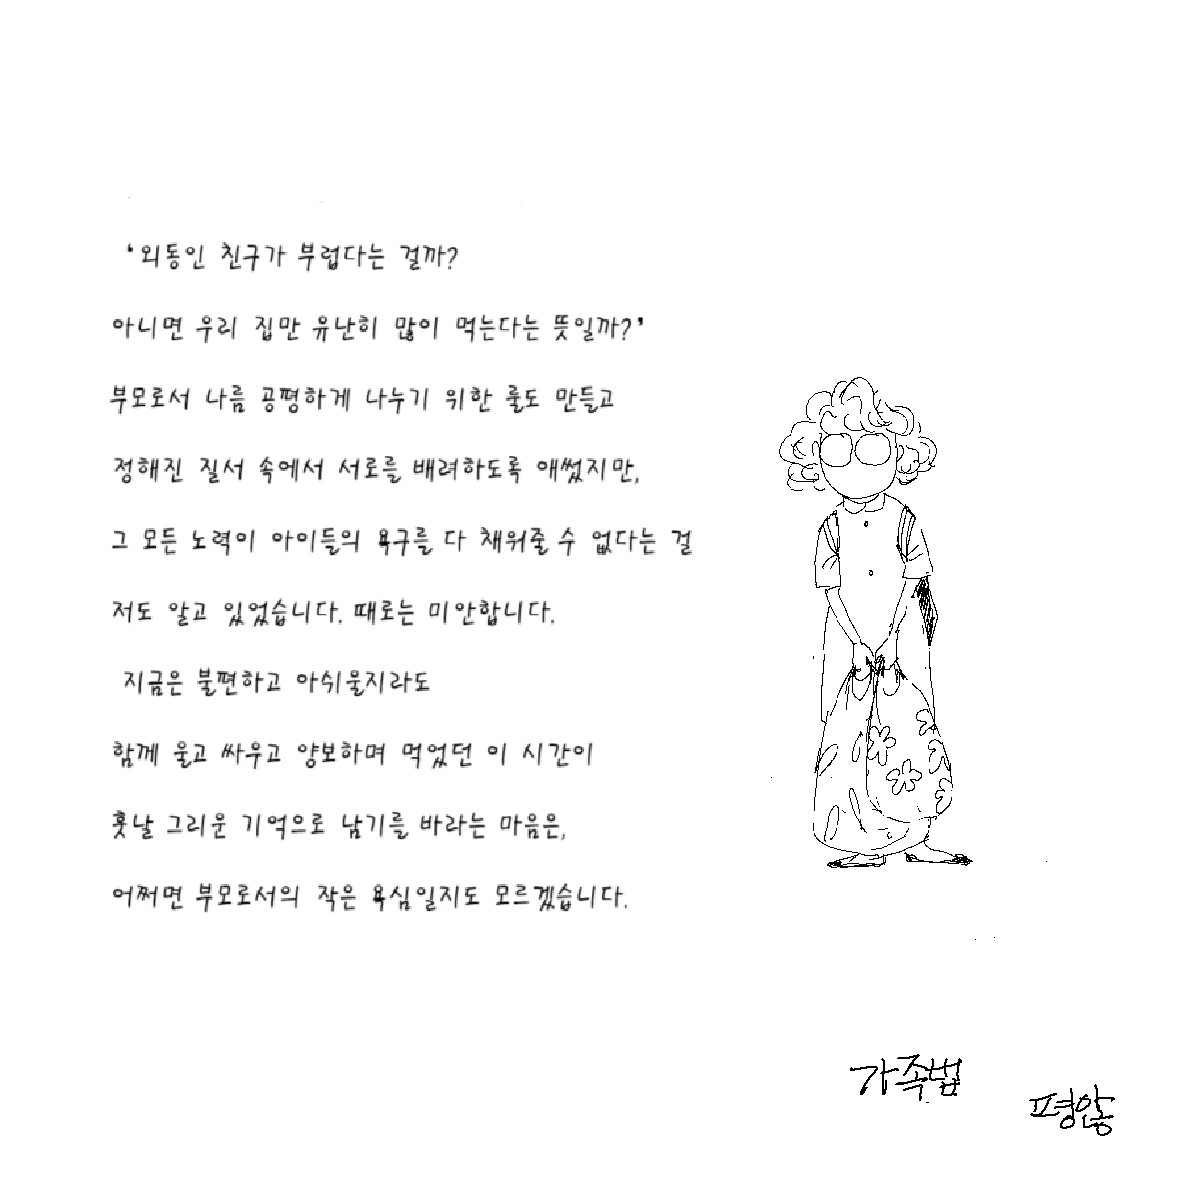 ‘외동인 친구가 부럽다는 걸까?
아니면 우리 집만 유난히 많이 먹는다는 뜻일까?’
부모로서 나름 공평하게 나누기 위한 룰도 만들고
정해진 질서 속에서 서로를 배려하도록 애썼지만,
그 모든 노력이 아이들의 욕구를 다 채워줄 수 없다는 걸
저도 알고 있었습니다. 때로는 미안합니다.
지금은 불편하고 아쉬울지라도
함께 울고 싸우고 양보하며 먹었던 이 시간이
훗날 그리운 기억으로 남기를 바라는 마음은,
어쩌면 부모로서의 작은 욕심일지도 모르겠습니다.
가족법